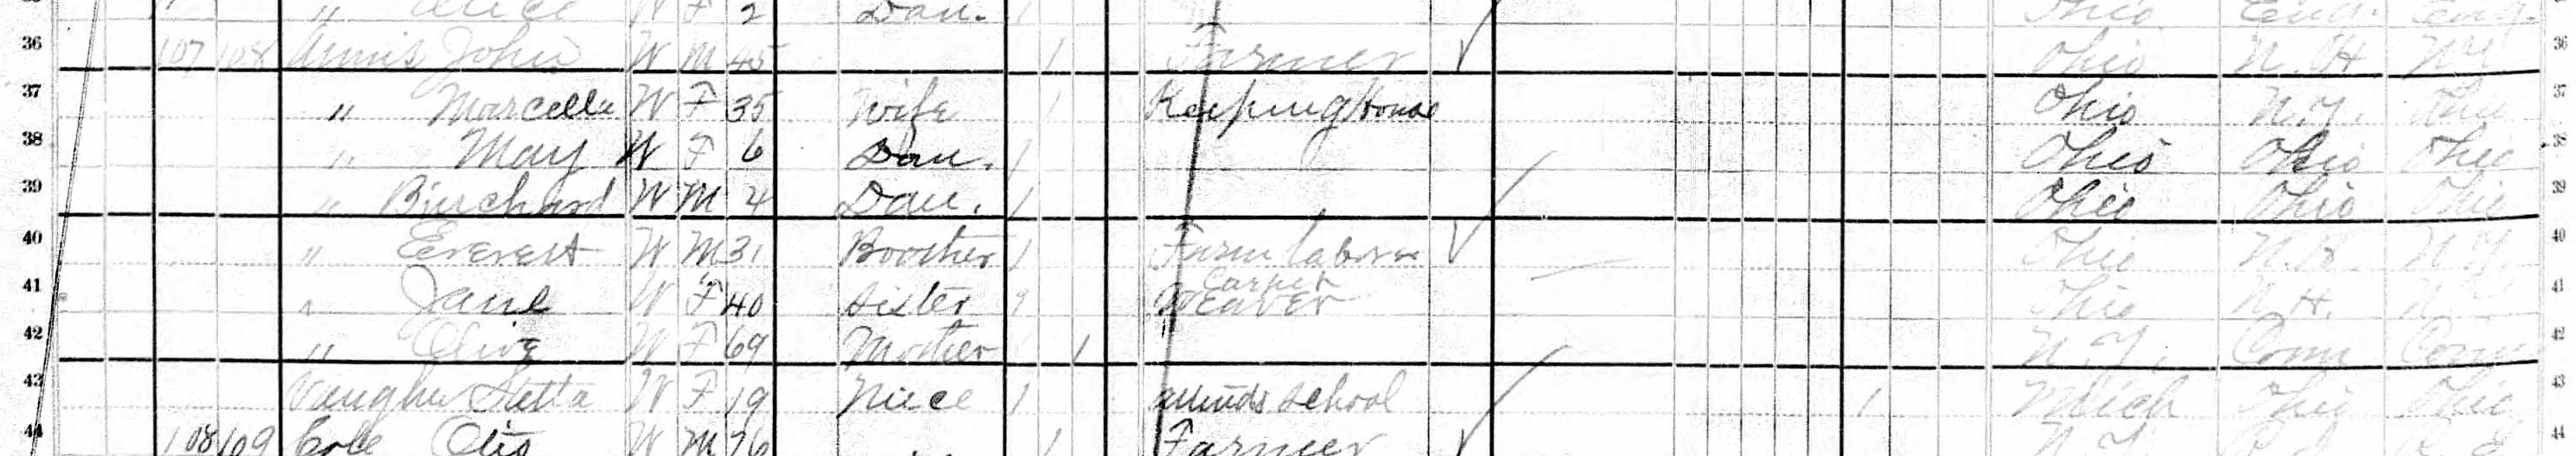 " Alice W F 2 Dau. 1 Ohio Eng. Eng.
36 107 108 Annis John W M 45 1 Farmer Ohio N.H N.Y 36
37 " Marcella W F 35 Wife 1 Keeping House Ohio N.Y. Ohio 37
38 " May W F 6 Dau. 1 Ohio Ohio Ohio 38
39 " Burchard W M 4 Dau. 1 Ohio Ohio Ohio 39
40 " Everest W M 31 Boother 1 Farm laborer Ohio N.H. N.Y. 40
41 " Jane W F 40 Sister 1 Carpet Weaver Ohio N.H. 41
42 " Olive W F 69 Mother 1 N.Y. Conn Conn 42
43 Vaughn Stella W F 19 Niece 1 attends school 1 Mich Ohio Ohio 43
44 108 109 Cole Otis W M 76 1 Farmer N.Y. R.I R.I 44